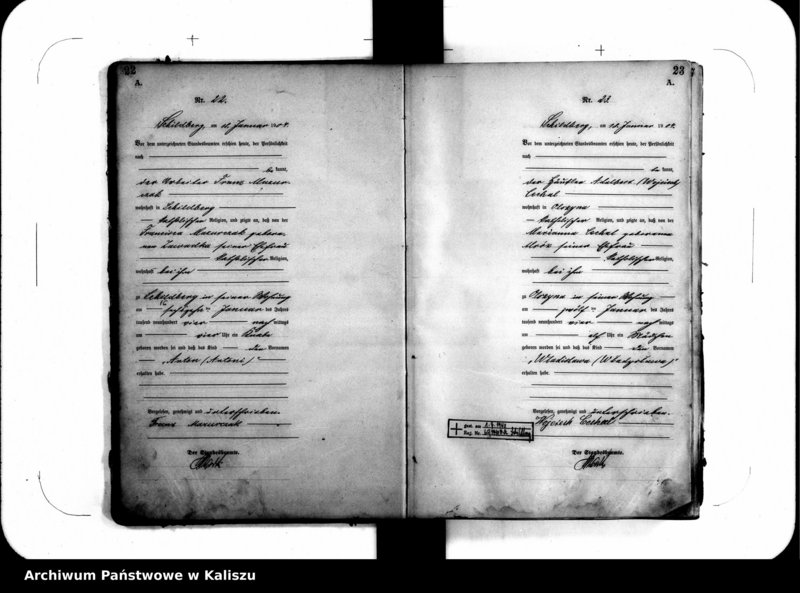 22
A.
Nr. 22.
Schildberg, am Januar 1904.
Vor dem unterzeichneten Standesbeamten erschien heute, der Persönlichkeit
nach
kannt,
der Arbeiter Franz Mazur-
czak
wohnhaft in Schildberg
katholischer Religion, und zeigte an, daß von der
Franziska Mazurczak gebore-
nen Zawadka seiner Ehefrau
katholischer Religion,
wohnhaft bei ihm
zu Schildberg in seiner Wohnung
am Januar des Jahres
tausend neunhundert vier nach mittags
um vier Uhr ein Knabe
geboren worden sei und daß das Kind den Vornamen
„Anton (Antoni)"
erhalten habe.
Vorgelesen, genehmigt und unterschrieben.
Franz Mazurczak
Der Standesbeamte.
23
A.
Nr. 23.
Schildberg, am Januar 1904.
Vor dem unterzeichneten Standesbeamten erschien heute, der Persönlichkeit
nach
kannt,
der Häusler Adalbert (Wojciech)
wohnhaft in Olszyna
katholischer Religion, und zeigte an, daß von der
Marianna geborenen
seiner Ehefrau
katholischer Religion,
wohnhaft bei ihm
zu Olszyna in seiner Wohnung
am Januar des Jahres
tausend neunhundert vier nach mittags
um Uhr ein Mädchen
geboren worden sei und daß das Kind den Vornamen
„Wladislawa (Władysława)"
erhalten habe.
Vorgelesen, genehmigt und unterschrieben.
Wojciech
gest. am
Reg. Nr.
Der Standesbeamte.
Archiwum Państwowe w Kaliszu